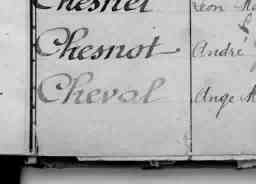 Chesnel Léon
Chesnot André
Cheval Ange